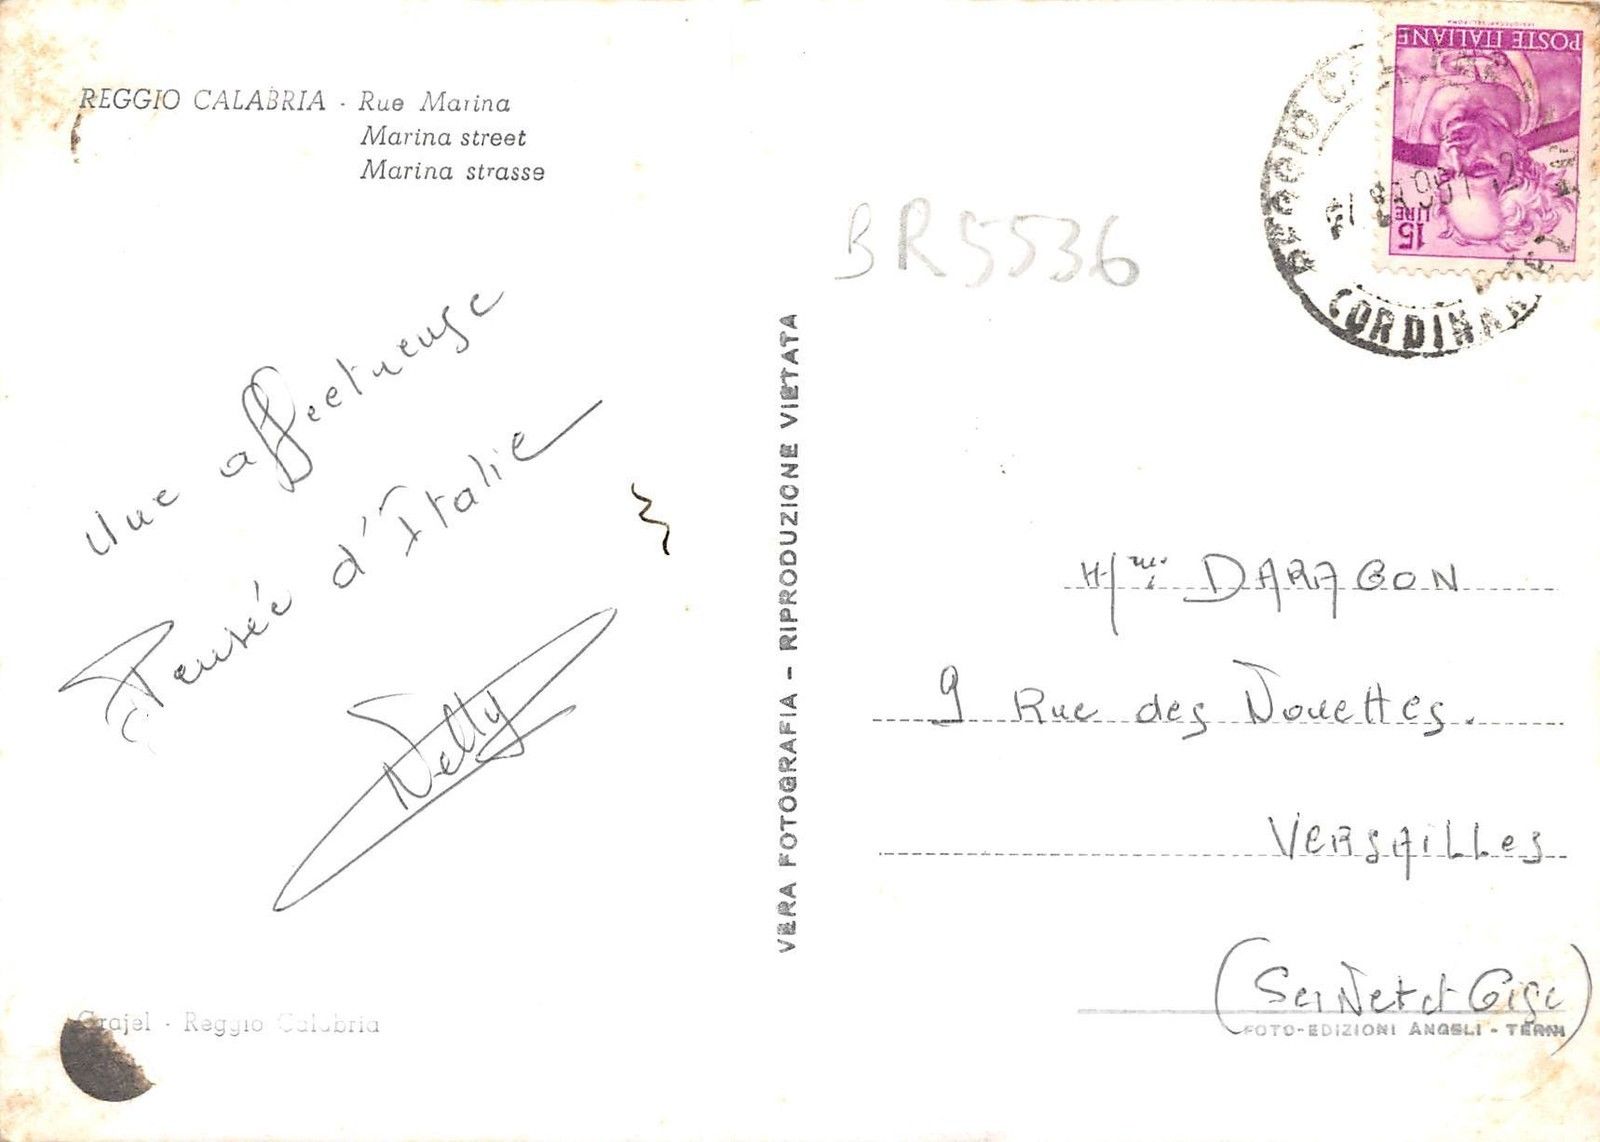 REGGIO CALABRIA - Rue Marina
Marina street
Marina strasse
BR5536
POSTE ITALIANE
15
LIRE
REGGIO
ORDINAR
Une affectueuse
Pensée d'Italie
Nelly
VERA FOTOGRAFIA - RIPRODUZIONE VIETATA
Mme DARAGON
9 Rue des Nouettes.
VERSAILLES
(Sei Net et Oise)
Grajel - Reggio Calabria
FOTO-EDIZIONI ANGELI - TERNI